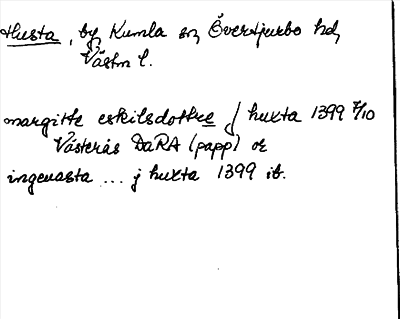 Husta, by, Kumla sn, Övertjurbo hd,
Västm l.
margitte eskilsdottre j huxta 1399 7/10
Västerås DaRA (papp) or
ingeuasta ... j huxta 1399 ib.